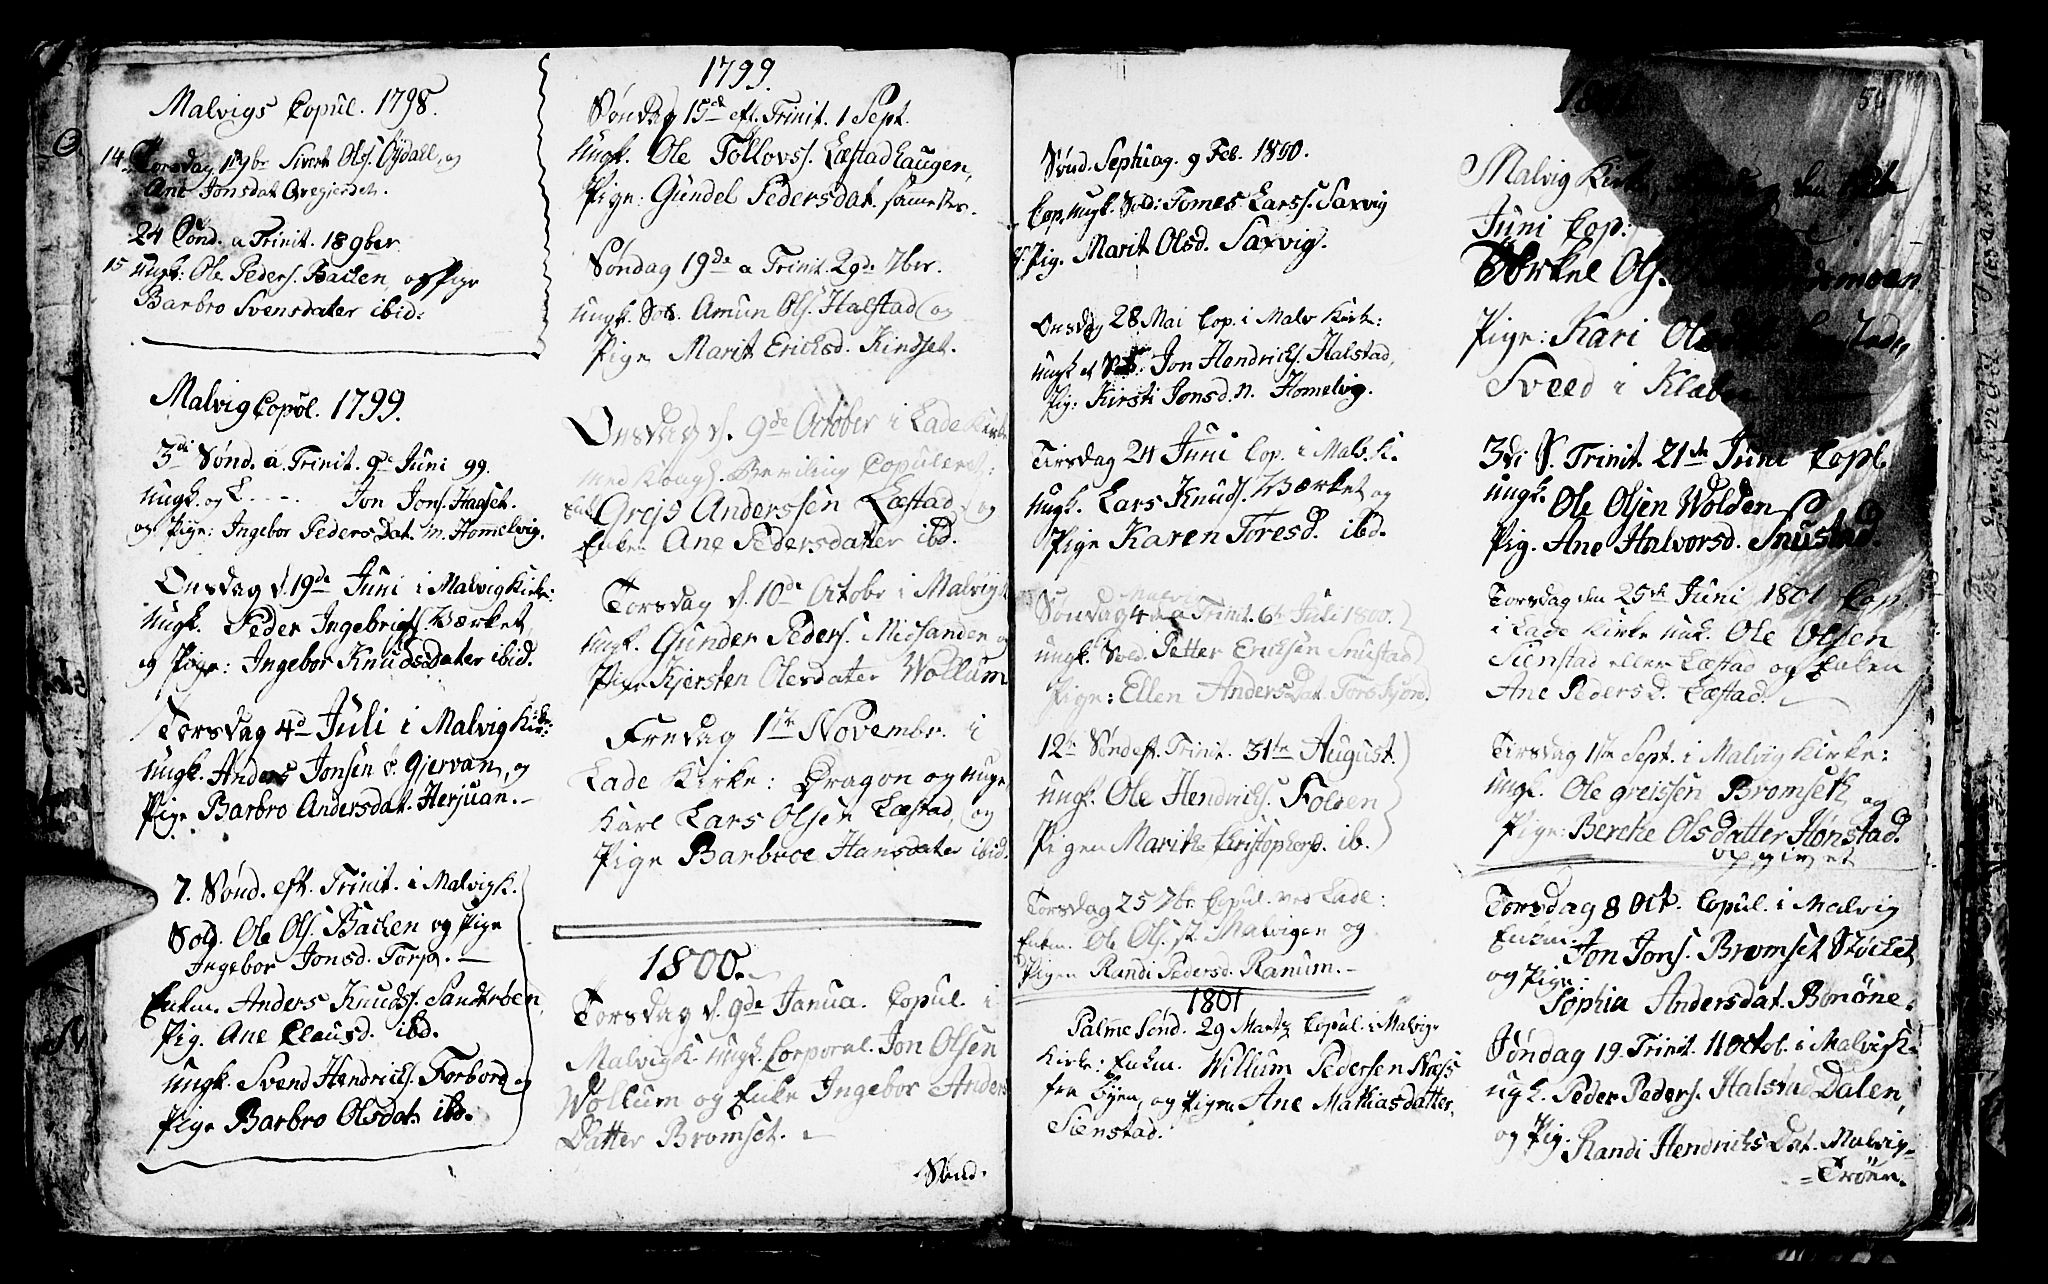 Malvigs Copul. 1798.
14. Torsdag 1 9br Sivert Ols. Øÿdall, og
Ane Jonsdat
24 Sönd. a Trinit. 18 9ber
15 Ungk: Ole Peders. Bachen, og Pige
Barbro Svensdater ibid.
Malvig Copul. 1799.
3di Sönd. a. Trinit. 9de Juni 99.
Ungk. og L. - - - Jon Jons. Haaset.
og Pige: Ingebor PedersDat. n. Hommelvig.
Onsdag d. 19de Juni i Malvig Kirke:
Ungk. Peder Ingebrigts. Værket,
og Pige: Ingebor Knudsdater ibid.
Torsdag 4d Juli i Malvig Kirke:
Ungk. Anders Jonsen ö. Gjervan, og
Pige Barbro Andersdat. Herjuan. -
7. Sönd. eft. Trinit. i Malvig K.
Sold. Ole Ols. Bachen og Pige
Ingebor Jonsd. Torp. -
Enkm. Anders Knuds. Sandtrøen,
Pig. Ane Clausd. ibd.
Ungk. Svend Hendrichs. Forbord og
Pige Barbro Olsdat. ibd.
1799.
Söndag 15de eft. Trinit. 1 Sept.
Ungk. Ole Tollovs. Læstadhaugen,
Pige: Gundel Pedersdat. sammester.
Söndag 19de a Trinit. 29de 7ber.
Ungk. Sol. Amun Ols. Halstad, og
Pige Marit Ericksd. Kindset.
Onsdag d. 9de October i Lade Kirke
med Kongl. Bevilling Copuleret:
Enk. Grejs Anderssen Læstad, og
Enke Ane Pedersdatter ibd.
Torsdag d. 10de Octobr i Malvig K
Ungk. Gunder Peders. Midsanden og
Pige Kjersten Olesdater Wollum
Fredag 1ste Novembr. i
Lade Kirke: Dragon og unge
Karl Lars Olsen Læstad, og
Pige Barbroe Hansdater ibid.
1800.
Torsdag d. 9de Janua. Copul. i
Malvig K. Ungk. Corporal. Jon Olsen
Wollum og Enke Ingebor Anders
Datter Bromset. -
Sönd.
Sönd. Septuag. 9 Feb. 1800.
Cop. Ungk. Sold: Tomes Lars. Saxvig
Pig. Marit Olsd. Saxvig.
Onsdag 28 Mai Cop. i Malv Kirk:
Ungk et Sold. Jon Hendrichs. Halstad,
Pig: Kirsti Jonsd. n. Homelvig.
Tirsdag 24 Juni Cop. i Malv. K.
Ungk. Lars Knuds. Værket og
Pige Karen Toresd. ibd.
Malvig
Söndag 4de a Trinit. 6te Juli 1800.
Ungk. Sold. Petter Ericksen Snustad
Pige: Ellen AndersDat. Torskjon.
12te Sönd eft. Trinit. 31te August.
Ungk. Ole Hendrichs. Folden
Pigen Marithe Christophersd. ib.
Torsdag 25 7br. Copul. ved Lade:
Enkm. Ole Ols. st. Malvigen og
Pigen Randi Pedersd. Ranum. -
1801
Palme Sönd. 29 Martz Copul. i Malvig
Kirke: Enkm. Willum Pedersen Næss
fra Byen, og Pigen Ane Mathiasdatter,
Sienstad.
56
Malvig Kirke den
Juni Cop:
Torkel Ols. moen
Pige: Kari
Sveed i Klæbu
3di S. Trinit. 21de Juni Copl.
Ungk. Ole Olsen Wolden
Pig. Ane Halvorsd. Snustad.
Torsdag den 25de Juni 1801 Cop.
i Lade Kirke Unk. Ole Olsen
Sienstad eller Læstad og Enken
Ane Pedersd. Læstad. -
Tirsdag 1ste Sept. i Malvig Kirke:
Ungk. Ole Greissen Bromseth, og
Pige: Berethe Olsdatter Hönstad.
opgivet
Torsdag 8 Oct. Copul. i Malvig
Enkm. Jon Jons. Bromset Stöchet,
og Pige: Sophia Andersdat.
Söndag 19. Trinit. 11 Octob. i Malvig K.
Ugk. Peder Peders. Halstad Dalen,
og Pig. Randi HendrichsDat. Malvig-
=Tröen.